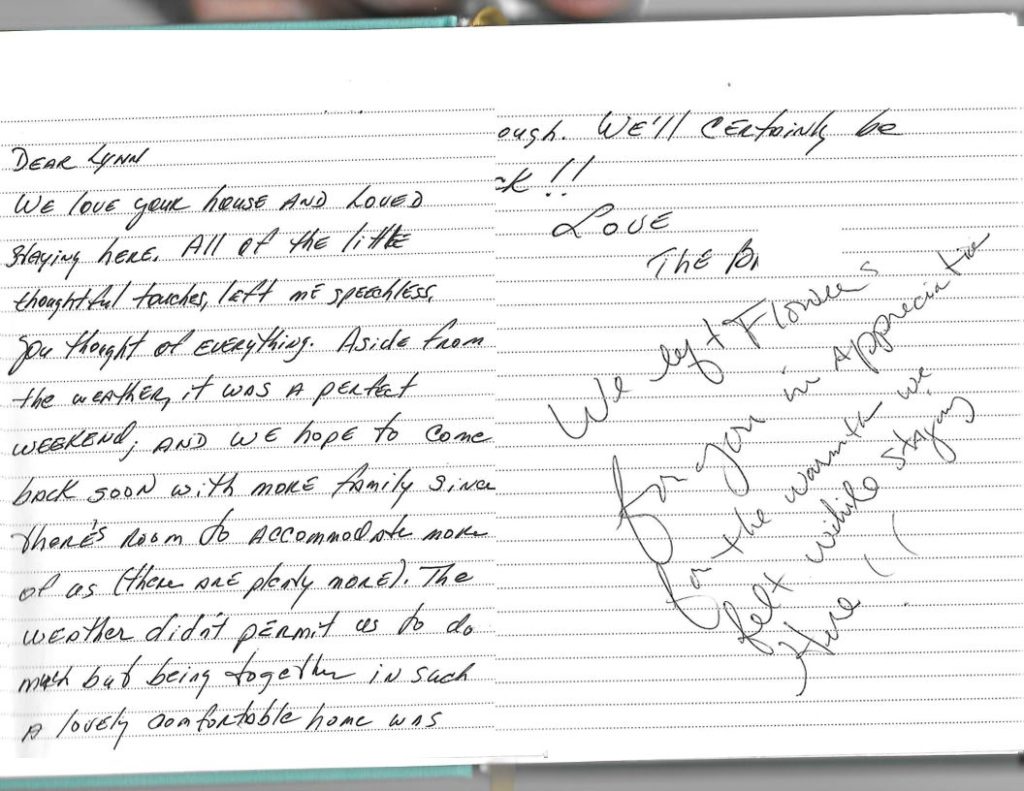 DEAR LYNN
WE love your house AND LOVED
staying here. All of the little
thoughtful touches, left me speechless,
you thought of everything. Aside from
the weather, it was a perfect
weekend, AND we hope to come
back soon with more family since
there's room to accommodate more
of us (there are plenty more). The
weather didn't permit us to do
much but being together in such
a lovely comfortable home was
ough. We'll certainly be
ck!!
Love
The Br
We left Flowers
for you in appreciation
for the warmth we
felt while staying
Here!!